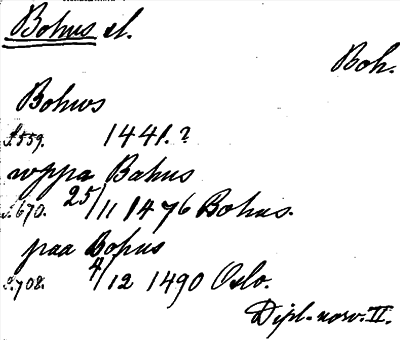 Bohus el.
Boh.
Bohws
S. 559. 1441.?
wppa Bahus
S. 670. 25/11 1476 Bohus.
paa Bopus
S. 708. 4/12 1490 Oslo.
Dipl. norv. II.